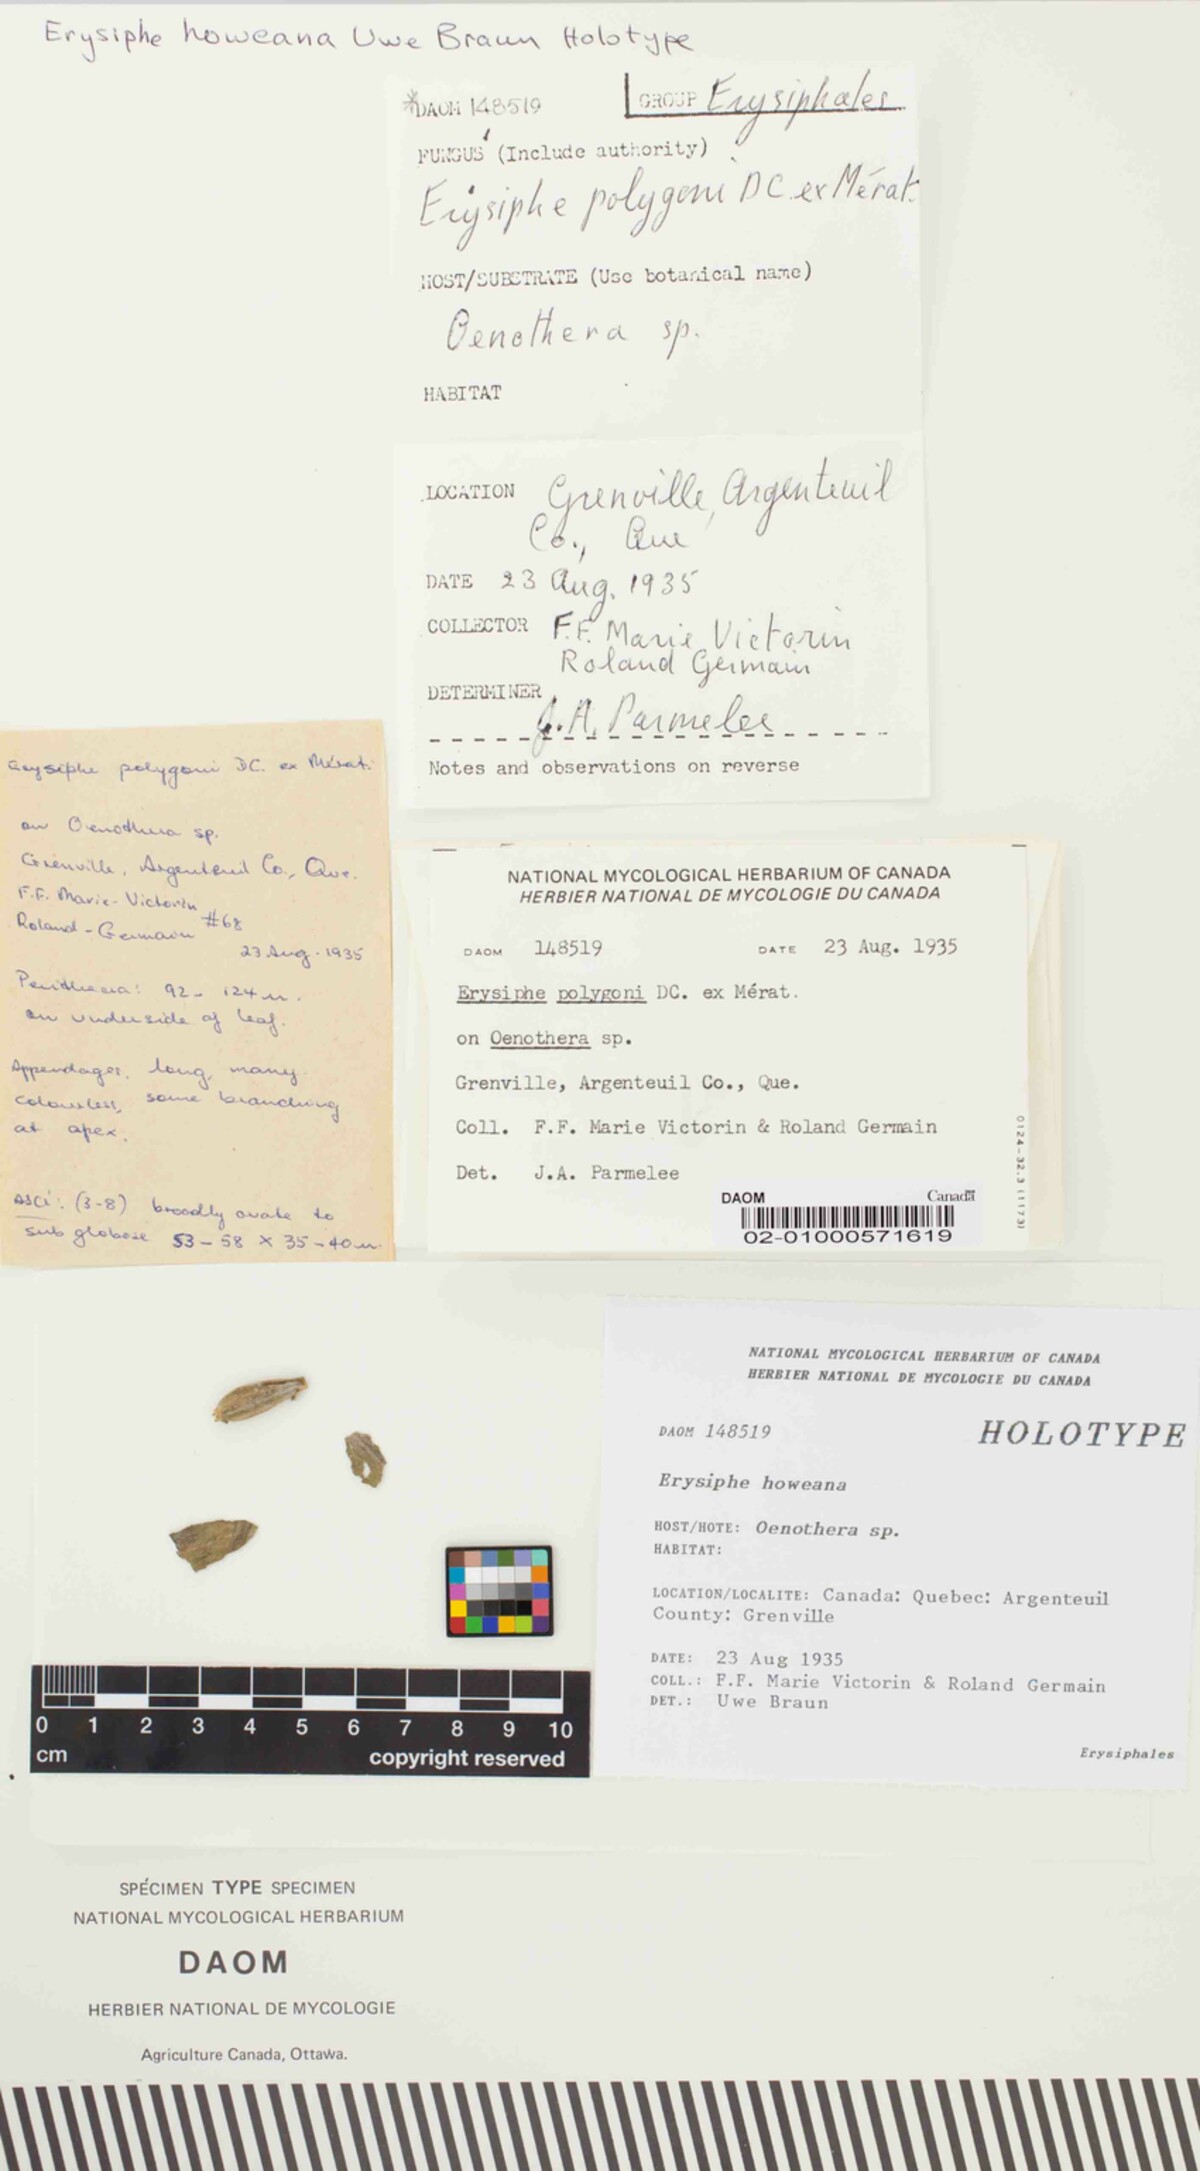 Erysiphe howeana Uwe Braun Holotype
*DAOM 148519
GROUP Erysiphales
FUNGUS (Include authority)
Erysiphe polygoni DC. ex Mérat.
HOST/SUBSTRATE (Use botanical name)
Oenothera sp.
HABITAT
LOCATION Grenville, Argenteuil
Co., Que
DATE 23 Aug. 1935
COLLECTOR F.F. Marie Victorin
Roland Germain
DETERMINER J.A. Parmelee
Notes and observations on reverse
Erysiphe polygoni DC. ex Mérat.
on Oenothera sp.
Grenville, Argenteuil Co., Que.
F.F. Marie-Victorin
Roland-Germain #68
23 Aug. 1935
Perithecia: 92-124 u.
on underside of leaf.
Appendages, long, many
colourless, some branching
at apex.
Asci: (3-8) broadly ovate to
sub globose 53-58 X 35-40 u.
NATIONAL MYCOLOGICAL HERBARIUM OF CANADA
HERBIER NATIONAL DE MYCOLOGIE DU CANADA
DAOM 148519 DATE 23 Aug. 1935
Erysiphe polygoni DC. ex Mérat.
on Oenothera sp.
Grenville, Argenteuil Co., Que.
Coll. F.F. Marie Victorin & Roland Germain
Det. J.A. Parmelee
0124-32.3 (1173)
DAOM Canada
02-01000571619
NATIONAL MYCOLOGICAL HERBARIUM OF CANADA
HERBIER NATIONAL DE MYCOLOGIE DU CANADA
DAOM 148519 HOLOTYPE
Erysiphe howeana
HOST/HOTE: Oenothera sp.
HABITAT:
LOCATION/LOCALITE: Canada: Quebec: Argenteuil
County: Grenville
DATE: 23 Aug 1935
COLL.: F.F. Marie Victorin & Roland Germain
DET.: Uwe Braun
Erysiphales
0 1 2 3 4 5 6 7 8 9 10
cm copyright reserved
SPÉCIMEN TYPE SPECIMEN
NATIONAL MYCOLOGICAL HERBARIUM
DAOM
HERBIER NATIONAL DE MYCOLOGIE
Agriculture Canada, Ottawa.